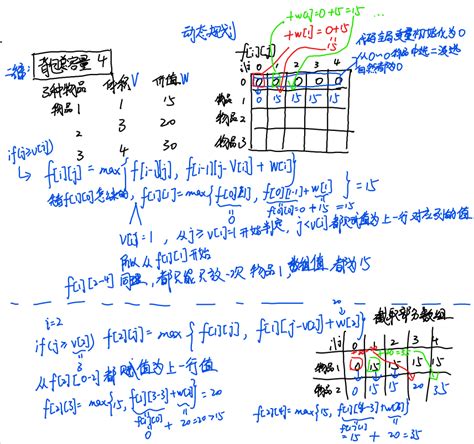 动态规划
+w[i]=0+15=15 ...
+w[i]=0+15
=15
f[i][j]
代码全局变量初始化为0
i\j 0 1 2 3 4
0 0 0 0 0 0
物品 1 0 15 15 15 15
2
物品 3
背包容量 4
3种物品 体积V 价值W
物品1 1 15
2 3 20
3 4 30
if(j≥v[i])
f[i][j] = max{ f[i-1][j], f[i-1][j-v[i]] + w[i] }
f[1][1] = max{ f[0][1], f[0][1-1]+w[1] } = 15
f[0][0]=0+15=15
v[1]=1, 从j≥v[i]=1开始判定, j<v[i]都赋值为上一行对应列的值
所以从f[1][1]开始
f[1][2~4]同理, 都只能放一次物品1, 数组值都为15
i=2
if(j≥v[2]) f[2][j] = max{ f[1][j], f[1][j-v[2]]+w[2] }
3
20
截取部分数组
从f[2][0~2]都赋值为上一行值
f[2][3]=max{15, f[1][3-3]+w[2]} = 20
f[1][0]
0 + 20=20>15
i\j 0 1 2 3 4
+20=35
物品1 0 15 15 15 15
物品2 0 15 15 20 35
f[2][4]=max{15, f[1][4-3]+w[2]}
f[1][1]
15 + 20=35